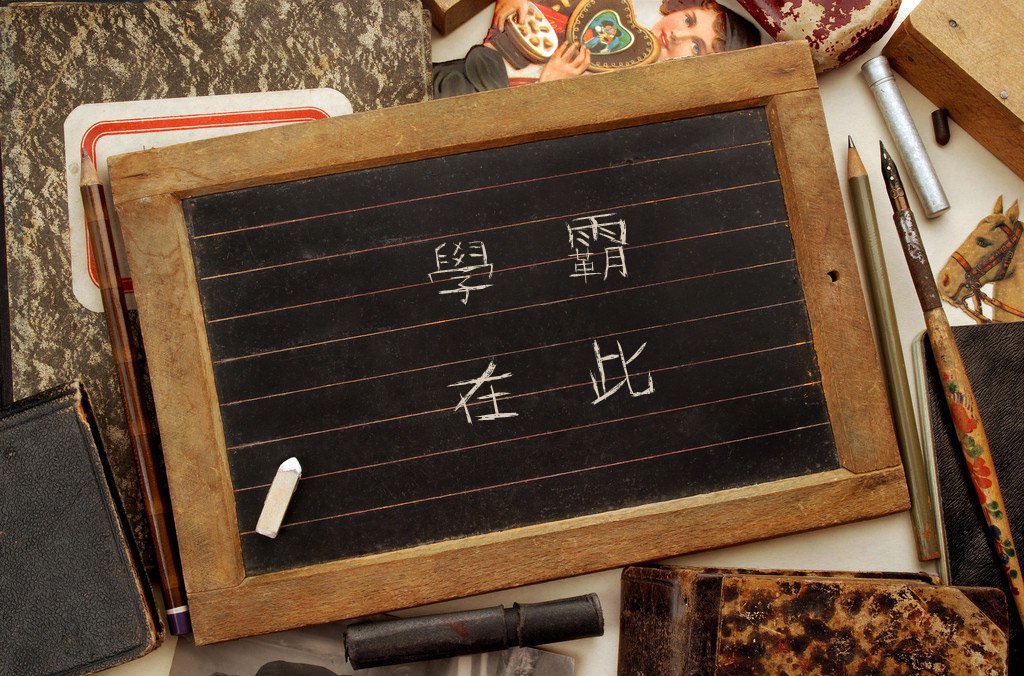 學霸
在此